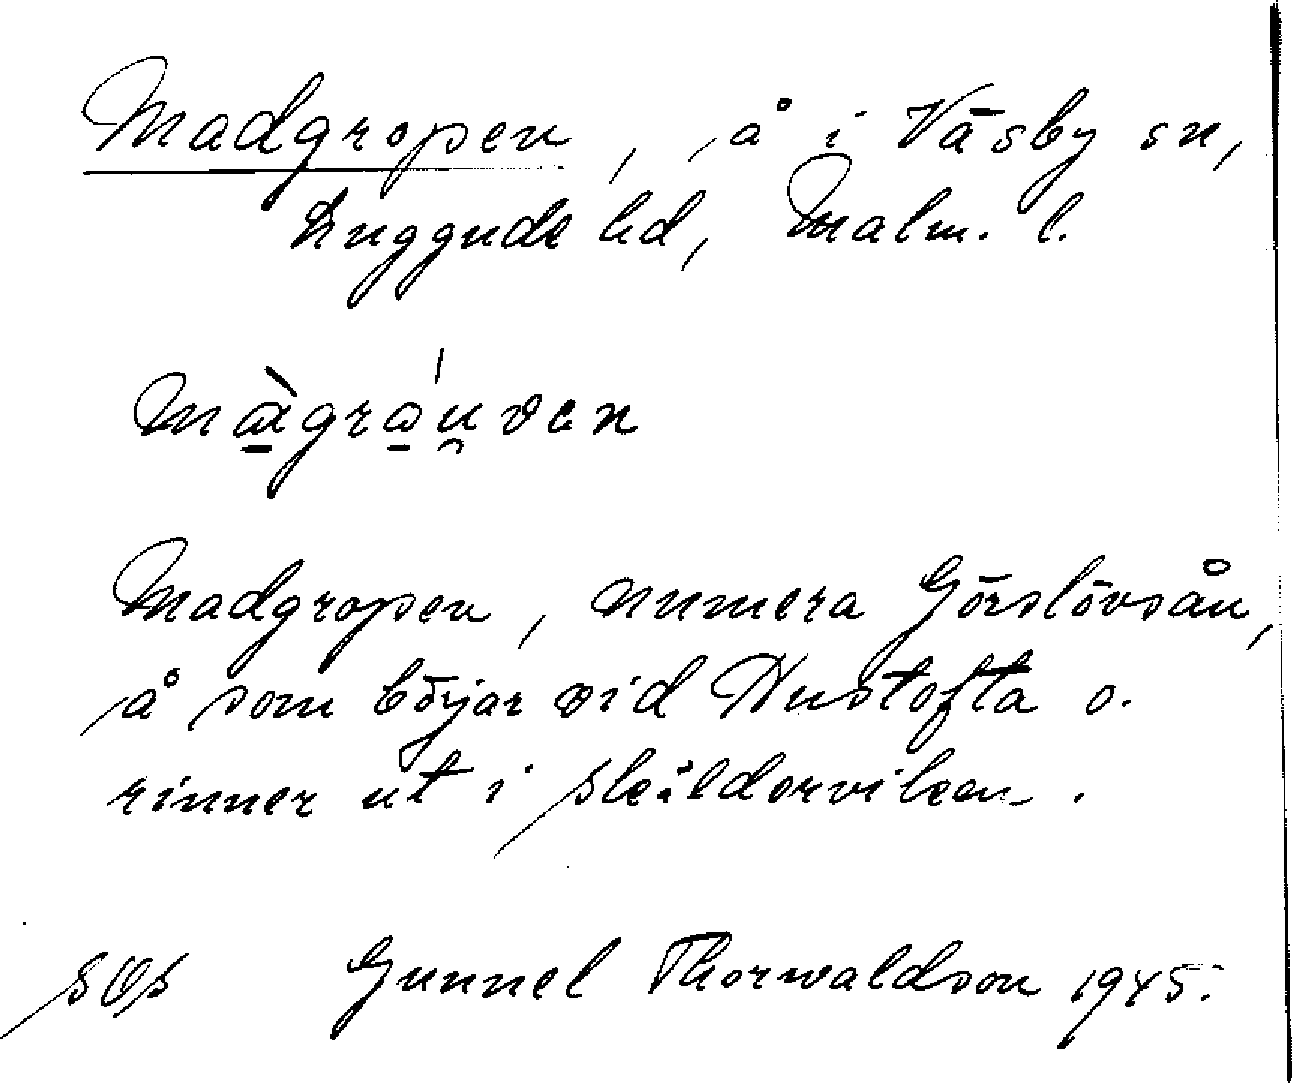 Madgropen, å i Väsby sn,
Luggude hd, Malm. l.
Madgropen, numera Görslövsån,
å som börjar vid Hustofta o.
rinner ut i Skälderviken.
SOS Gunnel Thorwaldson 1945.